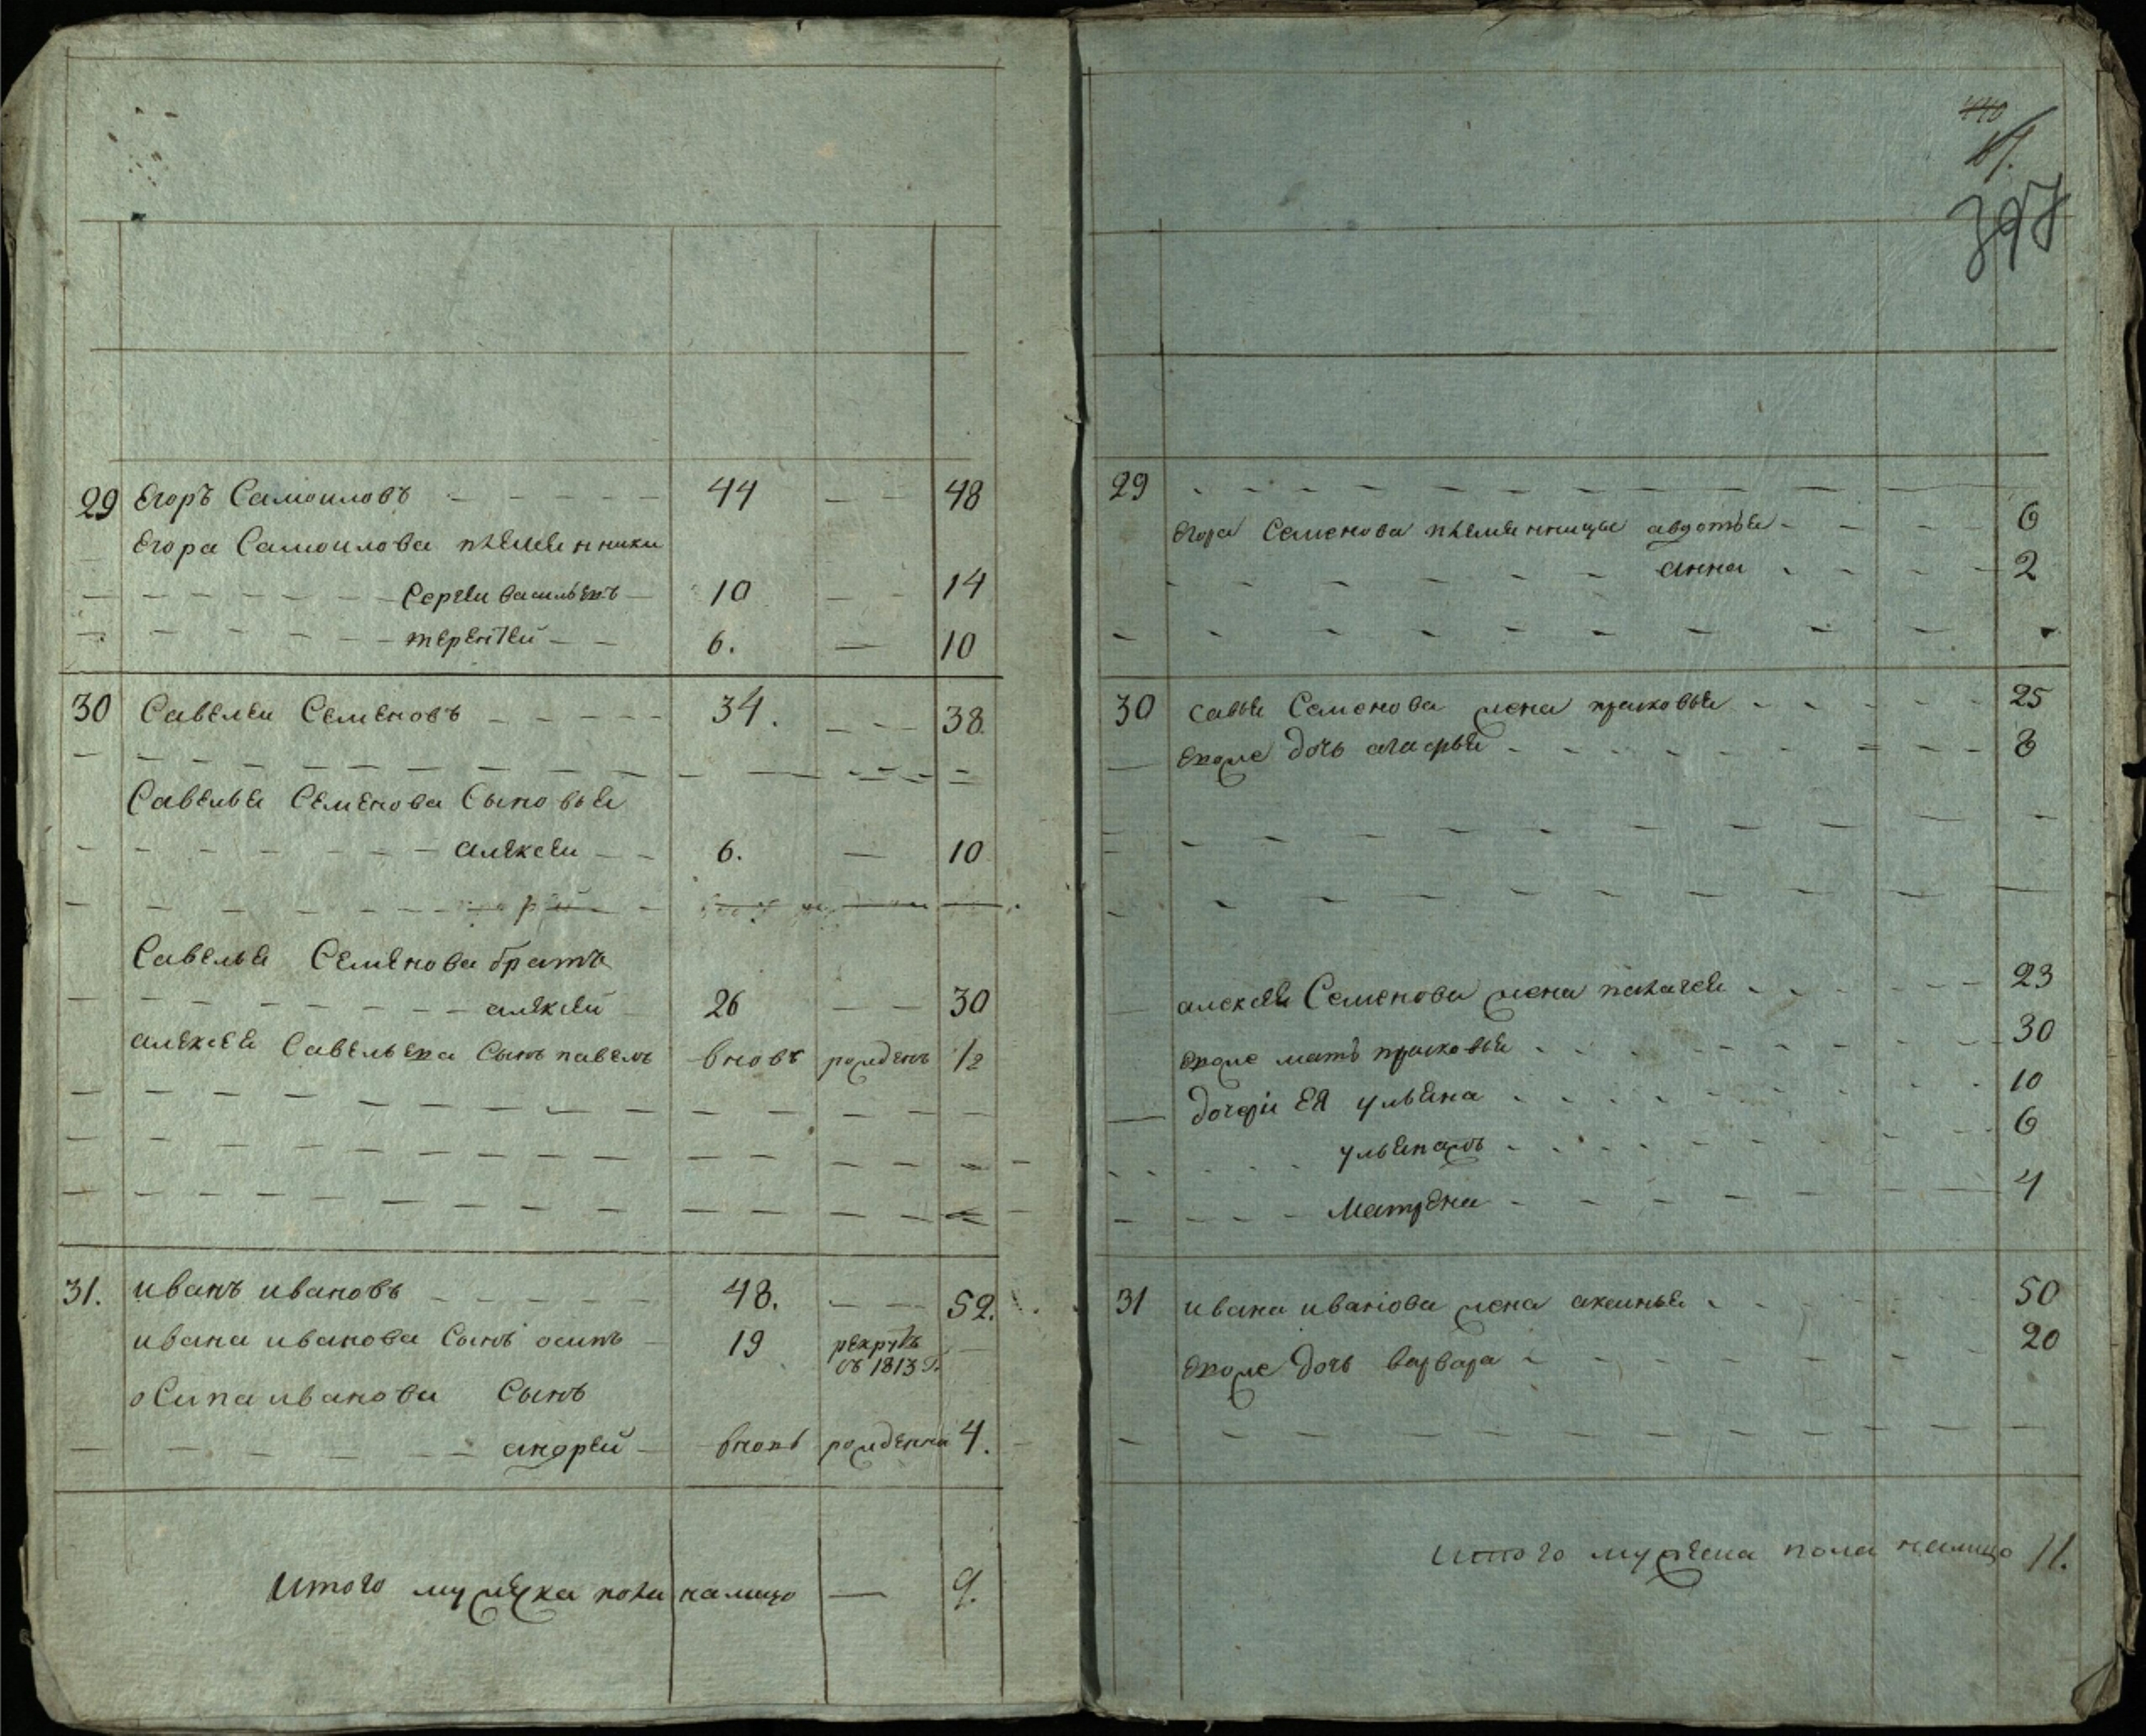 29 Егоръ Самоиловъ 44 48
Егора Самоилова племенники
Сергеи Васильевъ 10 14
терентеи 6. 10
30 Савелеи Семеновъ 34. 38.
Савелья Семенова Сыновья
алексеи 6. 10
Савелья Семенова братъ
алексеи 26 30
алексея Савельева Сынъ павелъ вновь рожденъ 1/2
31. иванъ ивановъ 48. 52.
ивана иванова Сынъ осипъ 19 рекрутъ
въ 1813 г.
осипа иванова Сынъ
андреи вновь рожденна 4.
Итого мужеска пола налицо 9.
440
397
29
Егора Семенова племенницы авдотья 6
анна 2
30 Савья Семенова жена прасковья 25
Евоже дочь агафья 8
алексея Семенова жена палагея 23
Евоже мать прасковья 30
дочери ея ульяна 10
ульянажъ 6
Матрена 4
31 ивана иванова жена аксинья 50
Евоже дочь варвара 20
Итого мужеска пола налицо 11.